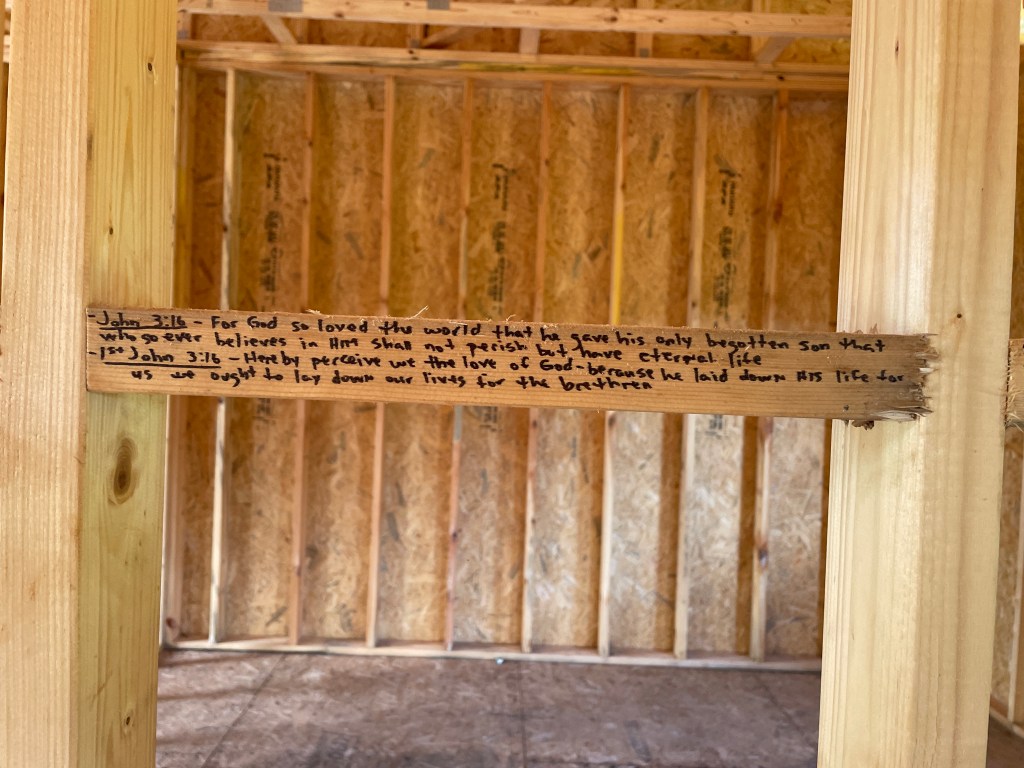 - John 3:16 - For God so loved the world that he gave his only begotten son that
who so ever believes in HIM shall not perish but have eternal life
- 1st John 3:16 - Hereby perceive we the love of God - because he laid down HIS life for
us we ought to lay down our lives for the brethren